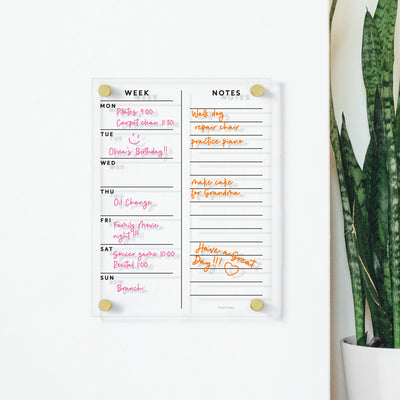 WEEK
MON
Pilates 9:00
Carpet clean 11:30
TUE
Olivia's Birthday!!
WED
THU
Oil Change
FRI
Family Movie
night!!!
SAT
Soccer game 10:00
Recital 1:00
SUN
Brunch
NOTES
Walk dog
repair chair
practice piano
make cake
for Grandma
Have a Great
Day!!!